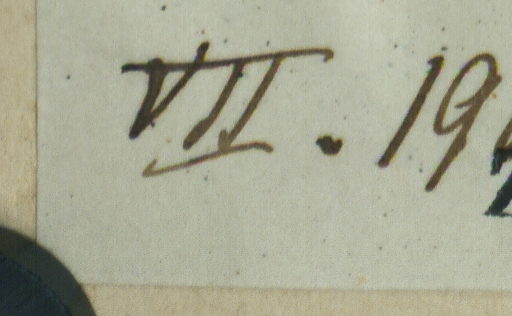 VII. 19